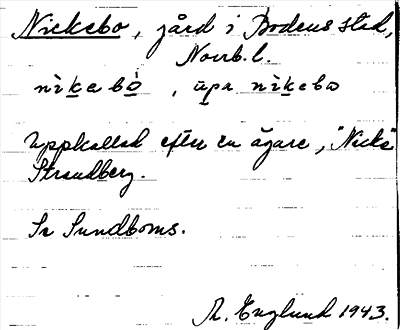 Nickebo, gård i Bodens stad,
Norrb. l.
nìkebò, upa nìkebo
Uppkallad efter en ägare, "Nicke"
Strandberg.
Se Sundboms.
A. Englund 1943.